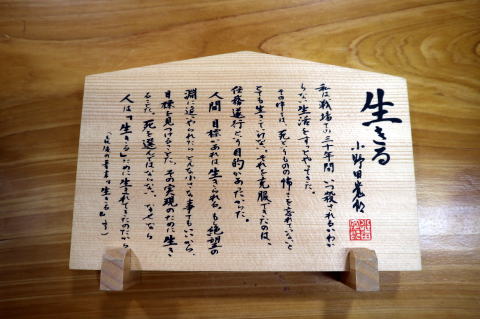 生きる
小野田寛郎
私は戦場での三十年間、いつ殺されるかわか
らない生活をすっとやってきた。
その中では、死というもの怖さを忘れてないと
とても生きていけない。それを克服できたのは、
任務遂行という目的があったからだ。
人間、目標があれば生きられる。もし絶望の
淵に追いやられたら、どんな小さな事でもいいから、
目標を見つけることだ。その実現のために生き
ることだ。死を選んではならない。なぜなら
人は「生きる」ために生まれてきたのだから